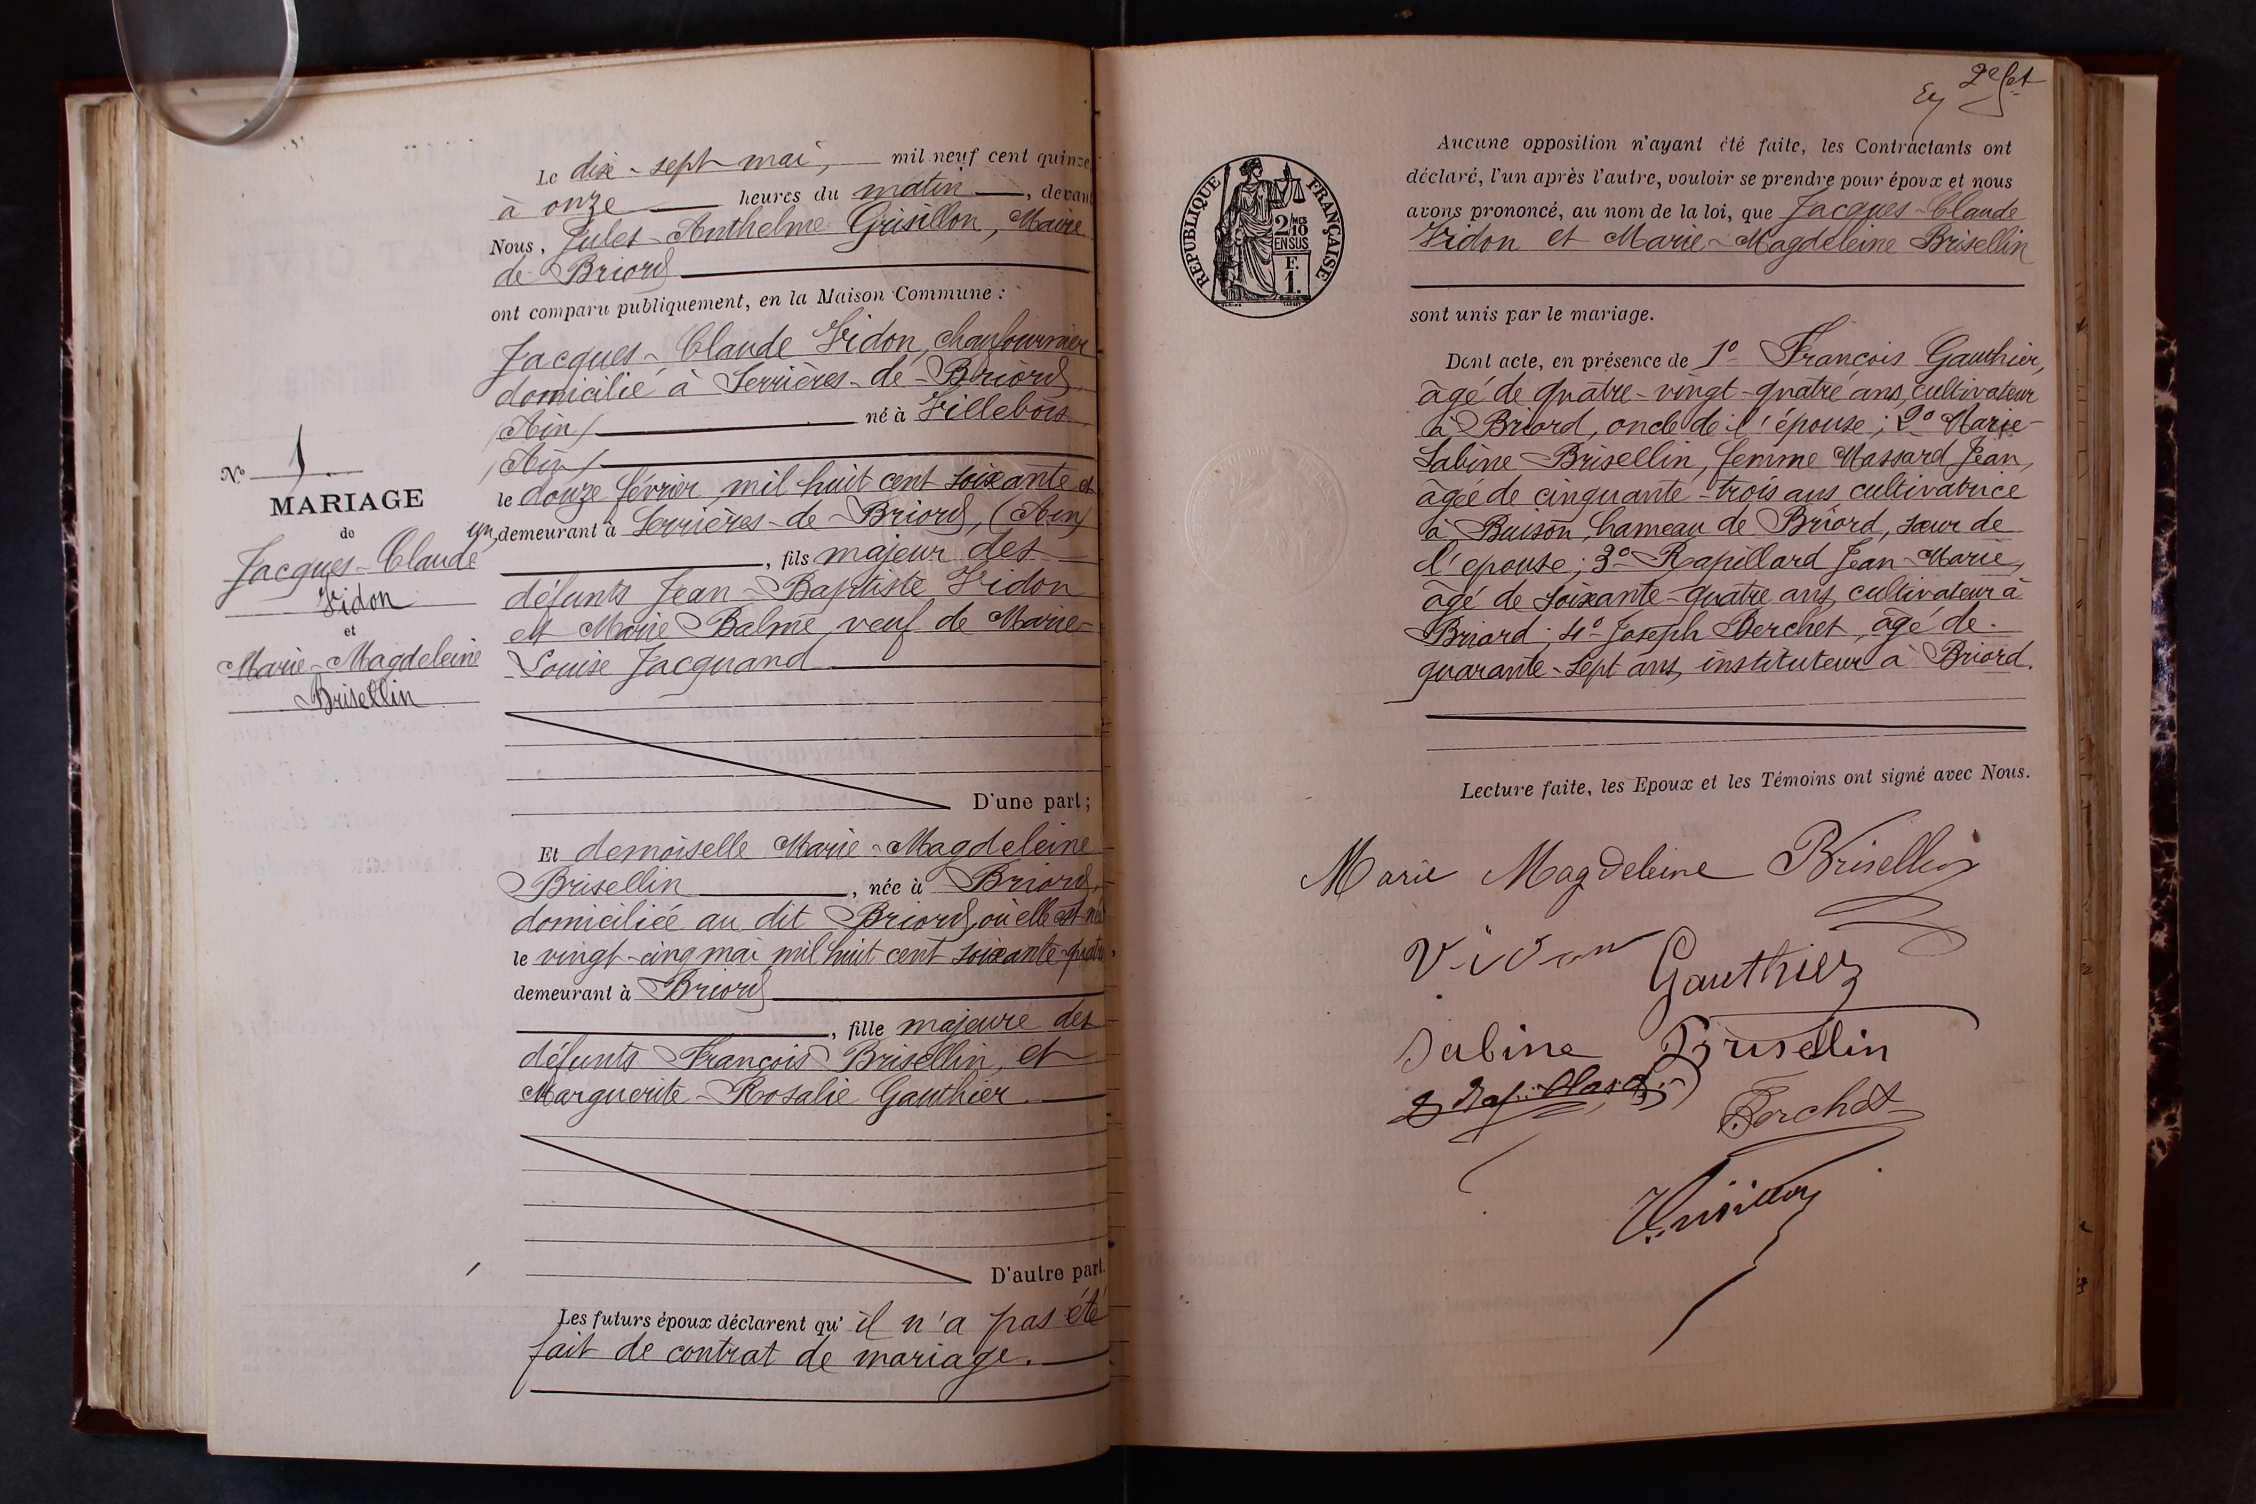 Nº 1
MARIAGE
de
Jacques-Claude
Vidon
et
Marie-Magdeleine
Brisellin
Le dix-sept mai, mil neuf cent quinze
à onze heures du matin, devant
Nous, Jules-Anthelme Grisillon, Maire
de Briord
ont comparu publiquement, en la Maison Commune :
Jacques-Claude Vidon, chaufournier
domicilié à Serrières-de-Briord
(Ain) né à Villebois
(Ain)
le douze février mil huit cent soixante et
un, demeurant à Serrières-de-Briord, (Ain)
, fils majeur des
défunts Jean-Baptiste Vidon
et Marie Balme, veuf de Marie-
Louise Jacquand
D'une part ;
Et demoiselle Marie-Magdeleine
Brisellin, née à Briord,
domiciliée au dit Briord, où elle est née
le vingt-cinq mai mil huit cent soixante-quatre,
demeurant à Briord
, fille majeure des
défunts François Brisellin, et
Marguerite-Rosalie Gauthier
D'autre part.
Les futurs époux déclarent qu' il n'a pas été
fait de contrat de mariage.
2e
Aucune opposition n'ayant été faite, les Contractants ont
déclaré, l'un après l'autre, vouloir se prendre pour époux et nous
avons prononcé, au nom de la loi, que Jacques-Claude
Vidon et Marie-Magdeleine Brisellin
sont unis par le mariage.
RÉPUBLIQUE FRANÇAISE
2/10 MES
EN SUS
F.
1.
Dont acte, en présence de 1º François Gauthier,
âgé de quatre-vingt-quatre ans, cultivateur
à Briord, oncle de l'épouse ; 2º Marie-
Sabine Brisellin, femme Massard Jean,
âgée de cinquante-trois ans cultivatrice
à Buison, hameau de Briord, sœur de
l'epouse ; 3º Rapillard Jean-Marie,
âgé de soixante-quatre ans, cultivateur à
Briord ; 4º Joseph Berchet, âgé de
quarante-sept ans, instituteur à Briord.
Lecture faite, les Epoux et les Témoins ont signé avec Nous.
Marie Magdeleine Brisellin
Vidon
Gauthier
Sabine Brisellin
Rapillard
Berchet
Grisillon